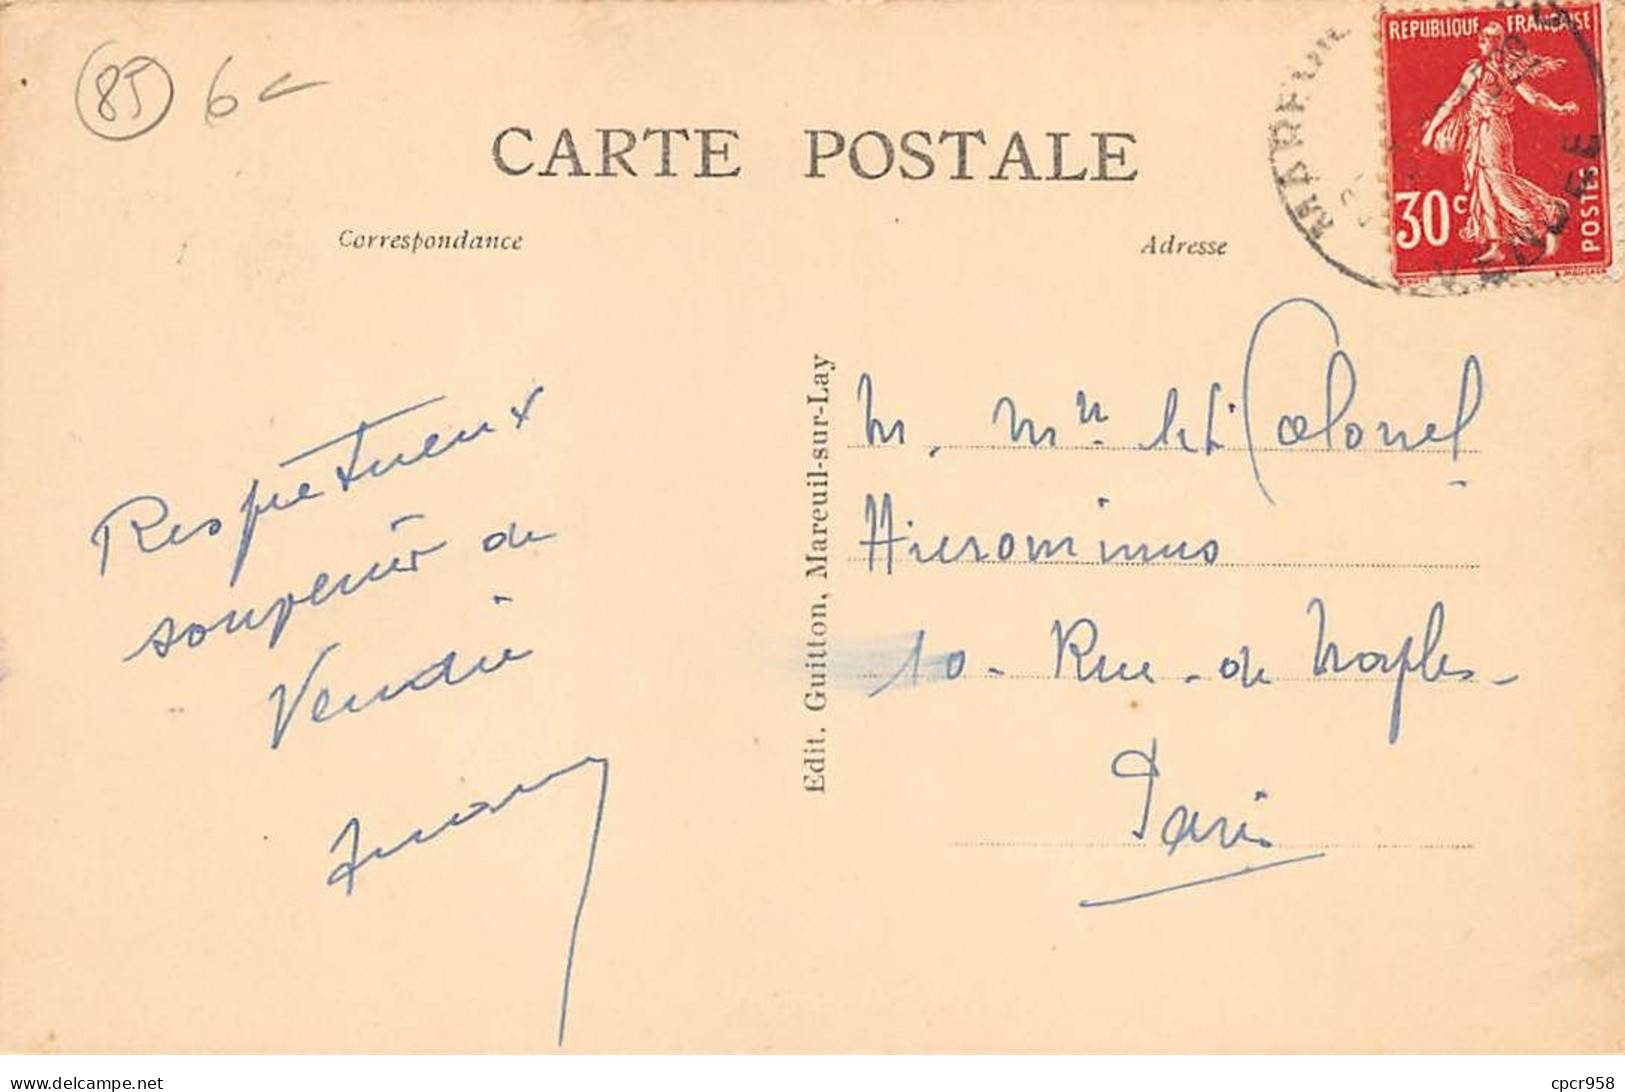 85 6
CARTE POSTALE
Correspondance
Adresse
REPUBLIQUE FRANÇAISE
30c
POSTES
MAREUIL
VENDEE
Respectueux
souvenir de
Vendée
Edit. Guitton, Mareuil-sur-Lay
M. Mme Colonel
Hieronimus
10 - Rue - de Naples -
Paris
cpcr958